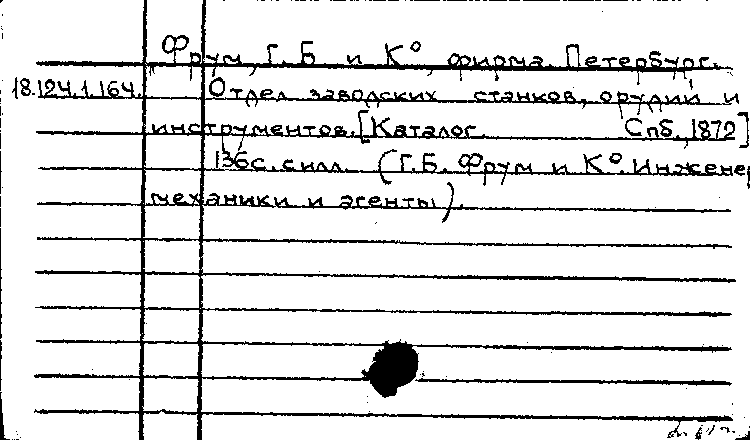 Фрум, Г. Б и К°, фирма. Петербург.
18.124.1.164. Отдел заводских станков, орудий и
инструментов. [Каталог. Спб, 1872]
136 с. с илл. (Г. Б. Фрум и К°. Инженер
механики и агенты).